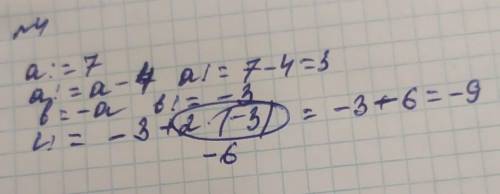 №4
a:=7
a:=a-4 a:=7-4=3
b=-a b:=-3
c:=-3+2·|-3| = -3+6=-9
-6